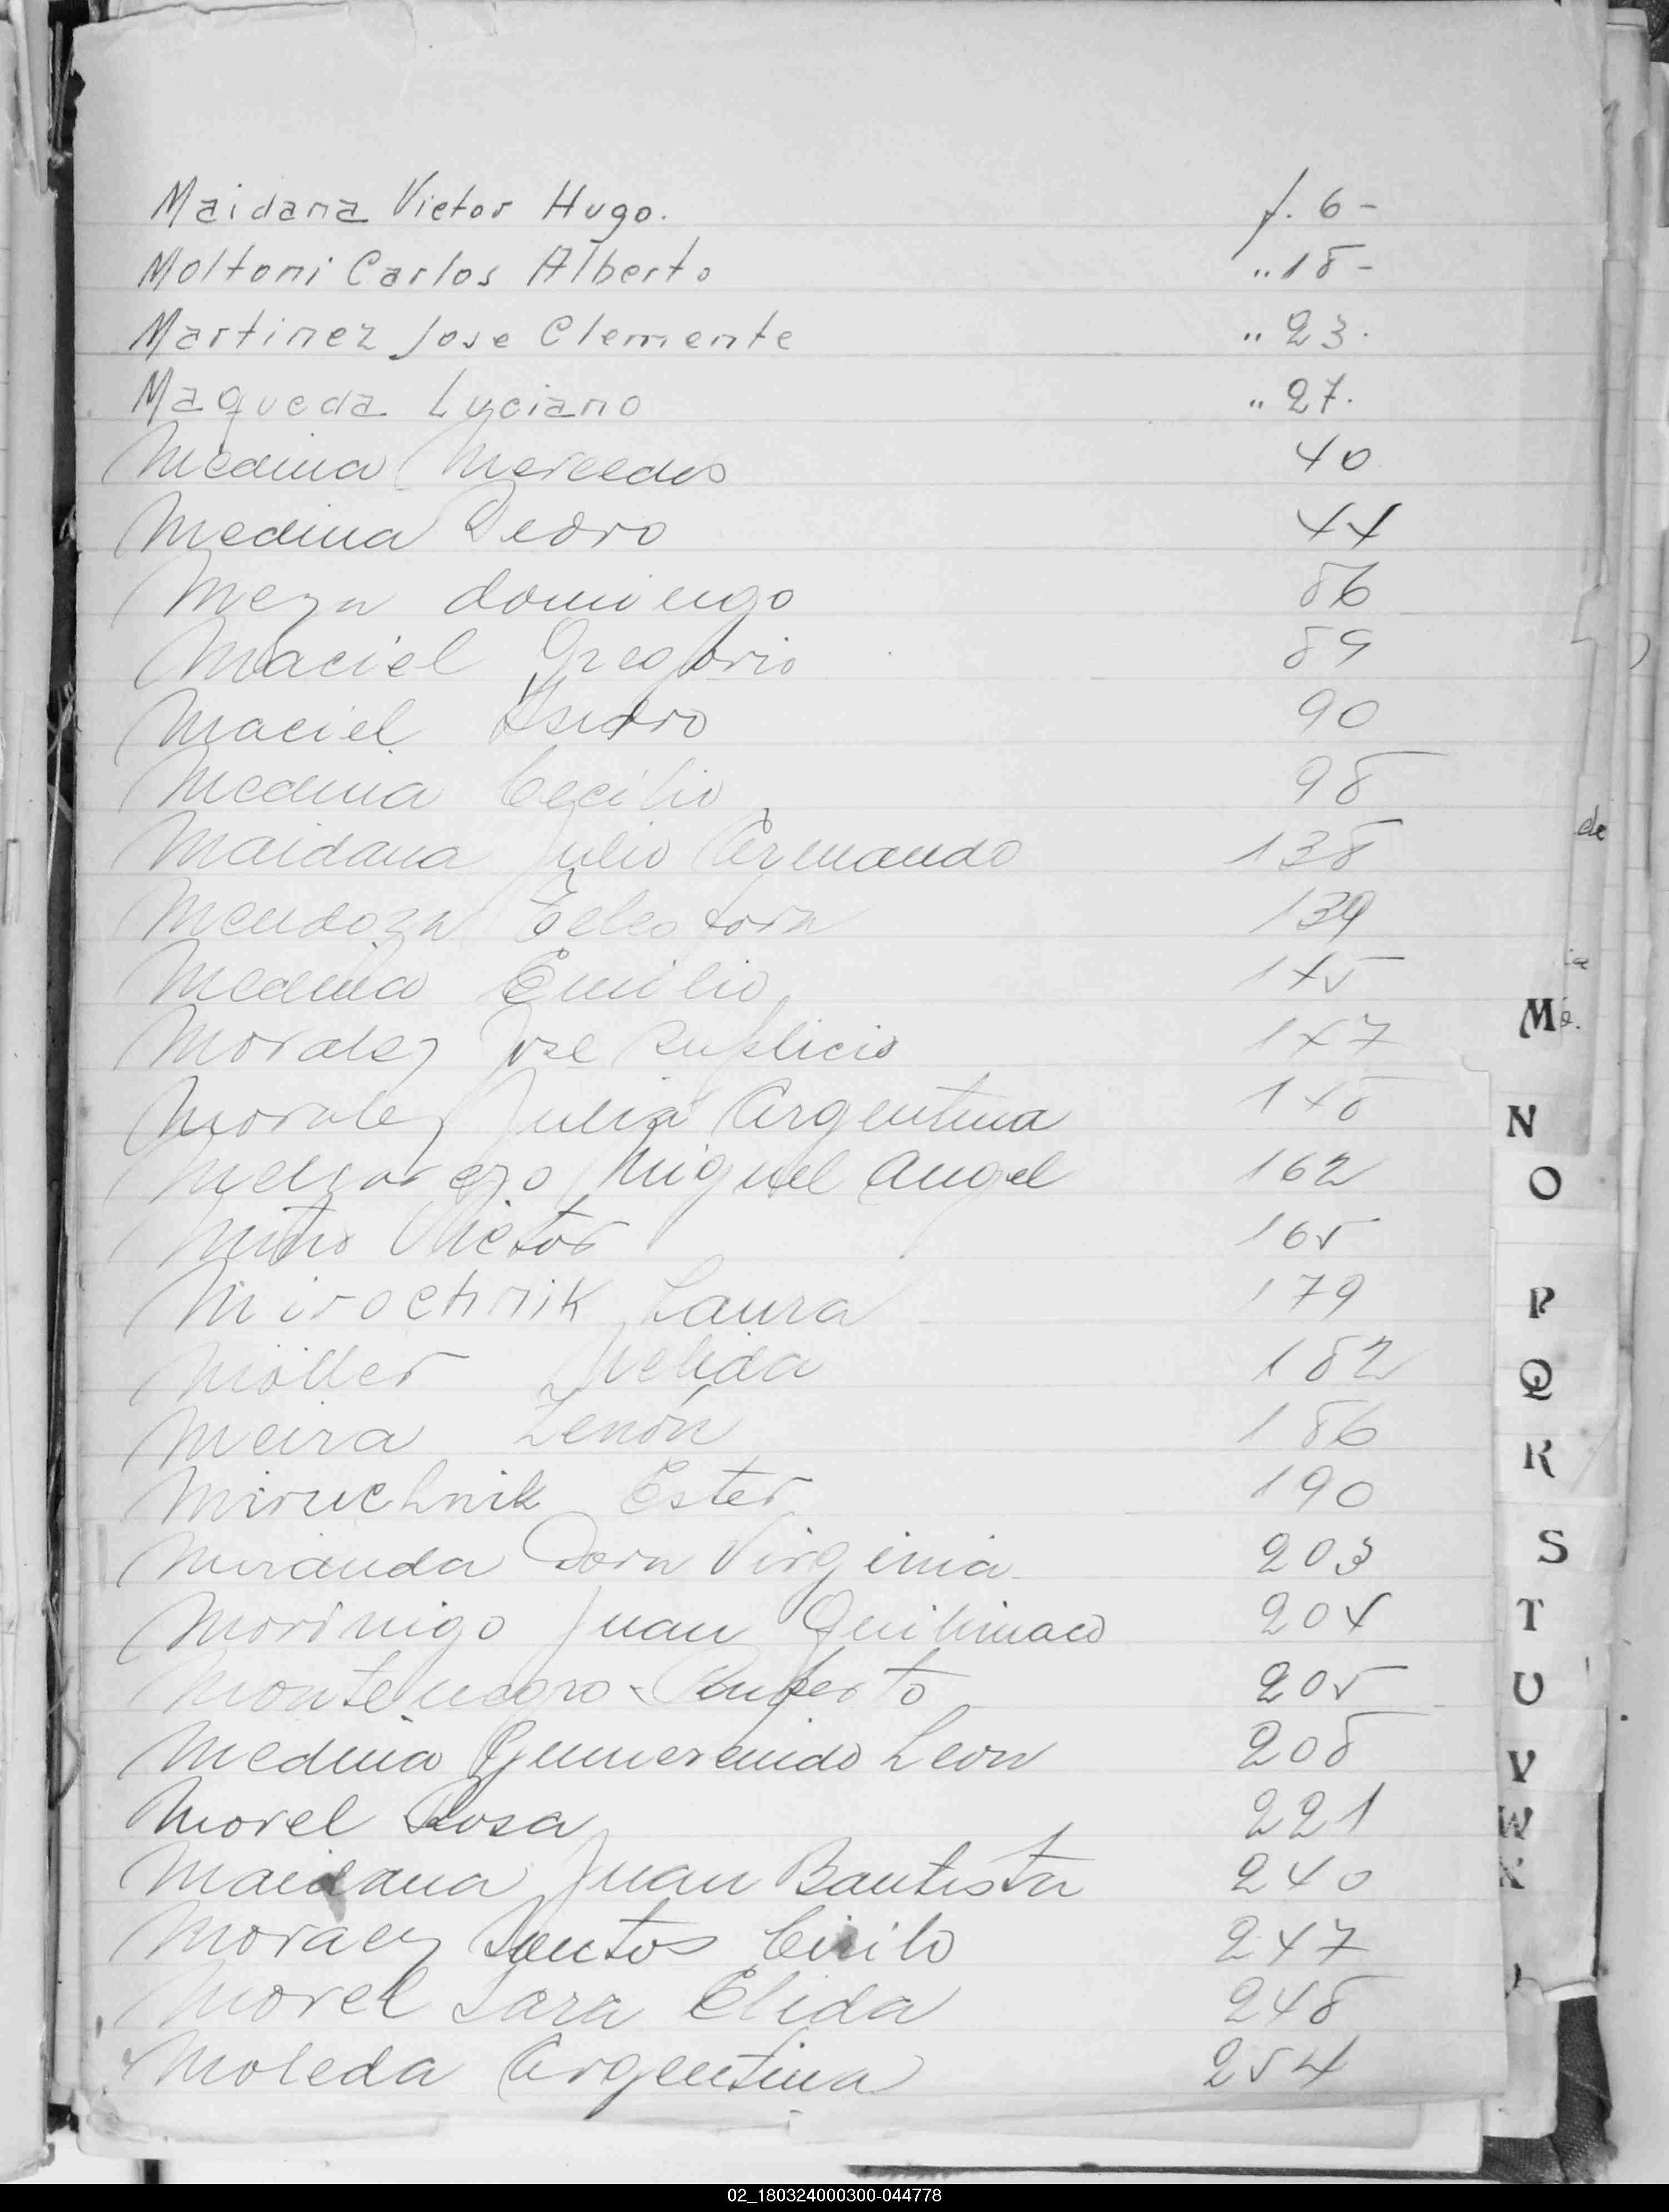 Maidana Victor Hugo. f. 6 -
Moltoni Carlos Alberto " 18 -
Martinez Jose Clemente " 23.
Maqueda Luciano " 27.
Medina Mercedes 40
Medina Pedro 44
Meza domingo 86
Maciel Gregorio 89
Maciel Isidro 90
Medina Cecilio 98
Maidana Julio Armando 138
Mendoza Telesfora 139
Medina Emilio 145
Morales Jose Suplicio 147
Morales Julia Argentina 148
Miguel Angel 162
Miño Victor 165
Mirochnik Laura 179
Möller Nelida 182
Meira Zenón 186
Miruchnik Ester 190
Miranda Dora Virginia 203
Morinigo Juan 204
Montenegro Ruperto 205
Medina Gumercindo Leon 208
Morel Rosa 221
Maidana Juan Bautista 240
Moraez Santos Cirilo 247
Morel Sara Elida 248
Moleda Argentina 254
de
ia
M o.
N
O
P
Q
R
S
T
U
V
W
X
02_180324000300-044778